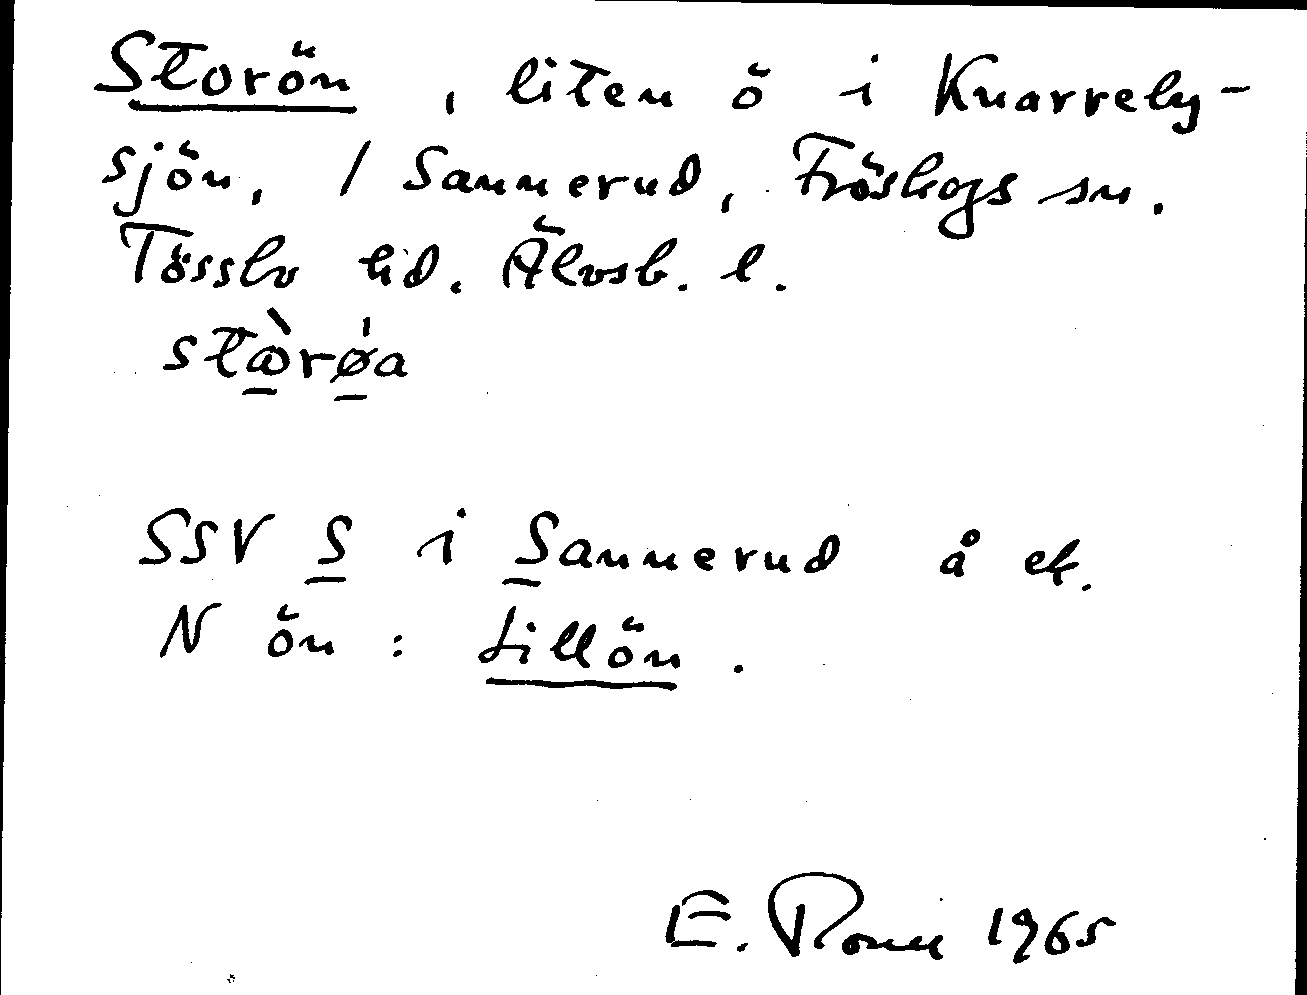 Storön, liten ö i Knarrely-
sjön, / Sannerud, Fröskogs sn.
Tössbo hd. Älvsb. l.
stὼrø̍a
SSV S i Sannerud å ek.
N ön: Lillön.
E. 1965